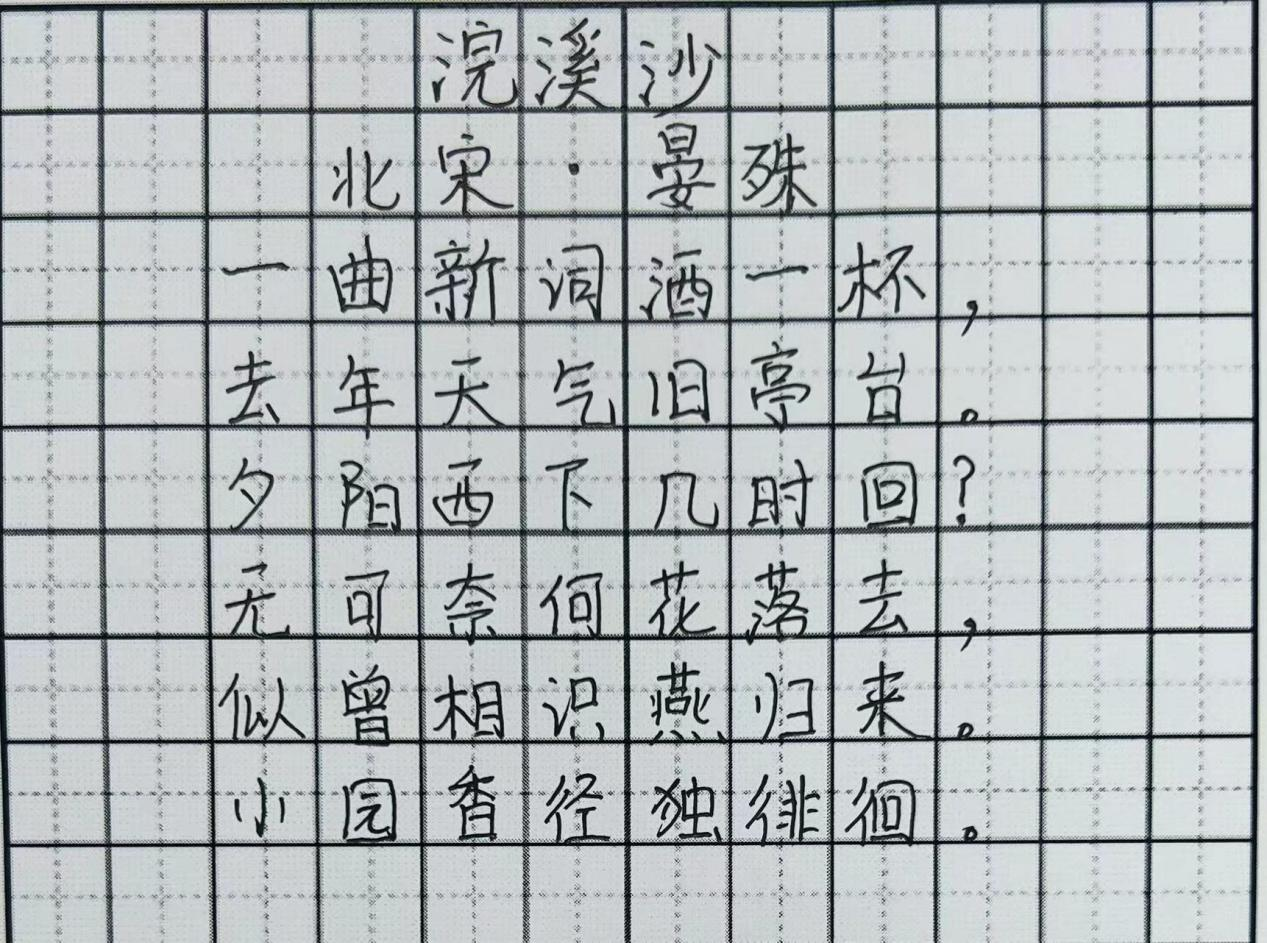 浣溪沙
北宋·晏殊
一曲新词酒一杯，
去年天气旧亭台。
夕阳西下几时回？
无可奈何花落去，
似曾相识燕归来。
小园香径独徘徊。